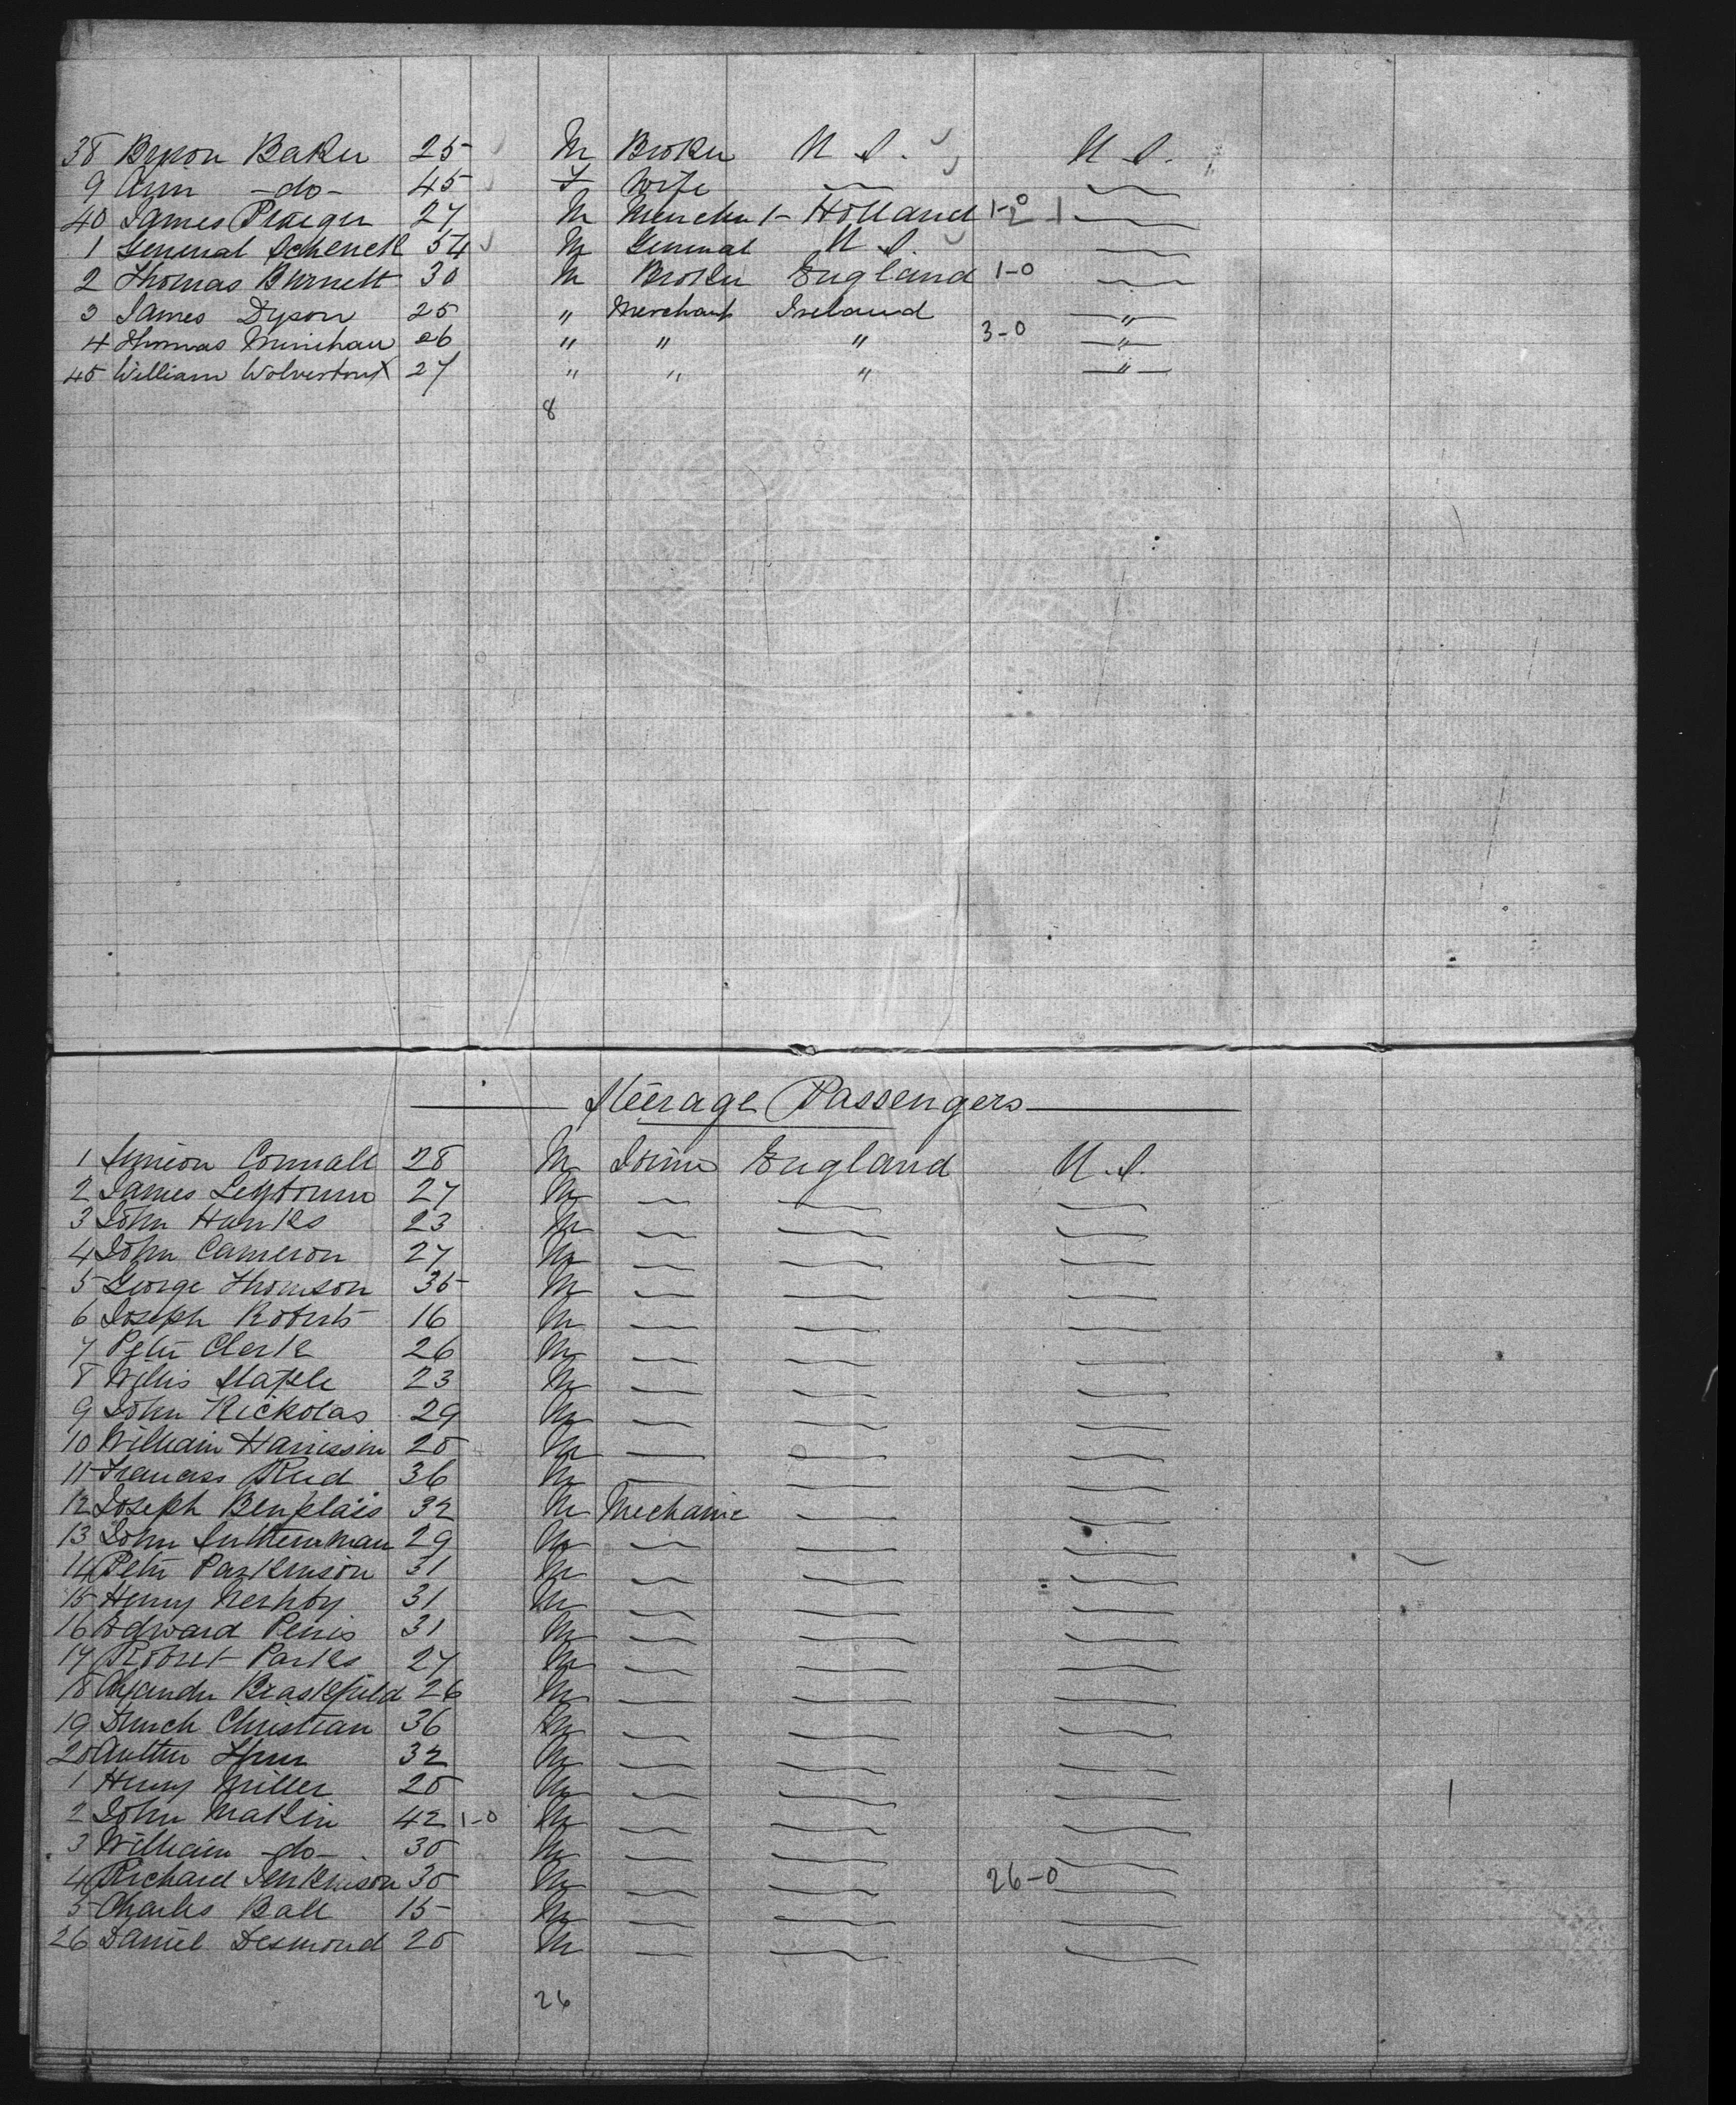 38 Byron Baker 25 M Broker U S. U S.
9 Ann - do - 45 F Wife
40 James Praeger 27 M Mercht Holland 1-0
1 General Schenck 54 M General U S.
2 Thomas Burnett 30 M Broker England 1-0
3 James Dyson 25 " Merchant Ireland "
4 Thomas Minihan 26 " " " 3-0 "
45 William Wolverton X 27 " " " "
8
Steerage Passengers
1 Simeon Connall 28 M England U.S.
2 James 27 M
3 John Hanks 23 M
4 John Cameron 27 M
5 George Thomson 35 M
6 Joseph Roberts 16 M
7 Peter Clark 26 M
8 Willis Staple 23 M
9 John Nickolas 29 M
10 William Harrisson 28 M
11 Francass Reid 36 M
12 Joseph 32 M Mechanic
13 John 29 M
14 Peter Parkinson 31 M
15 Henry 31 M
16 Edward 31 M
17 Robert Parks 27 M
18 26 M
19 Christian 36 M
20 32 M
1 Henry Miller 28 M
2 John Makin 42 1-0 M
3 William - do - 30 M
4 Richard Jenkinson 30 M 26-0
5 Charles Ball 15 M
26 Daniel Desmond 20 M
26